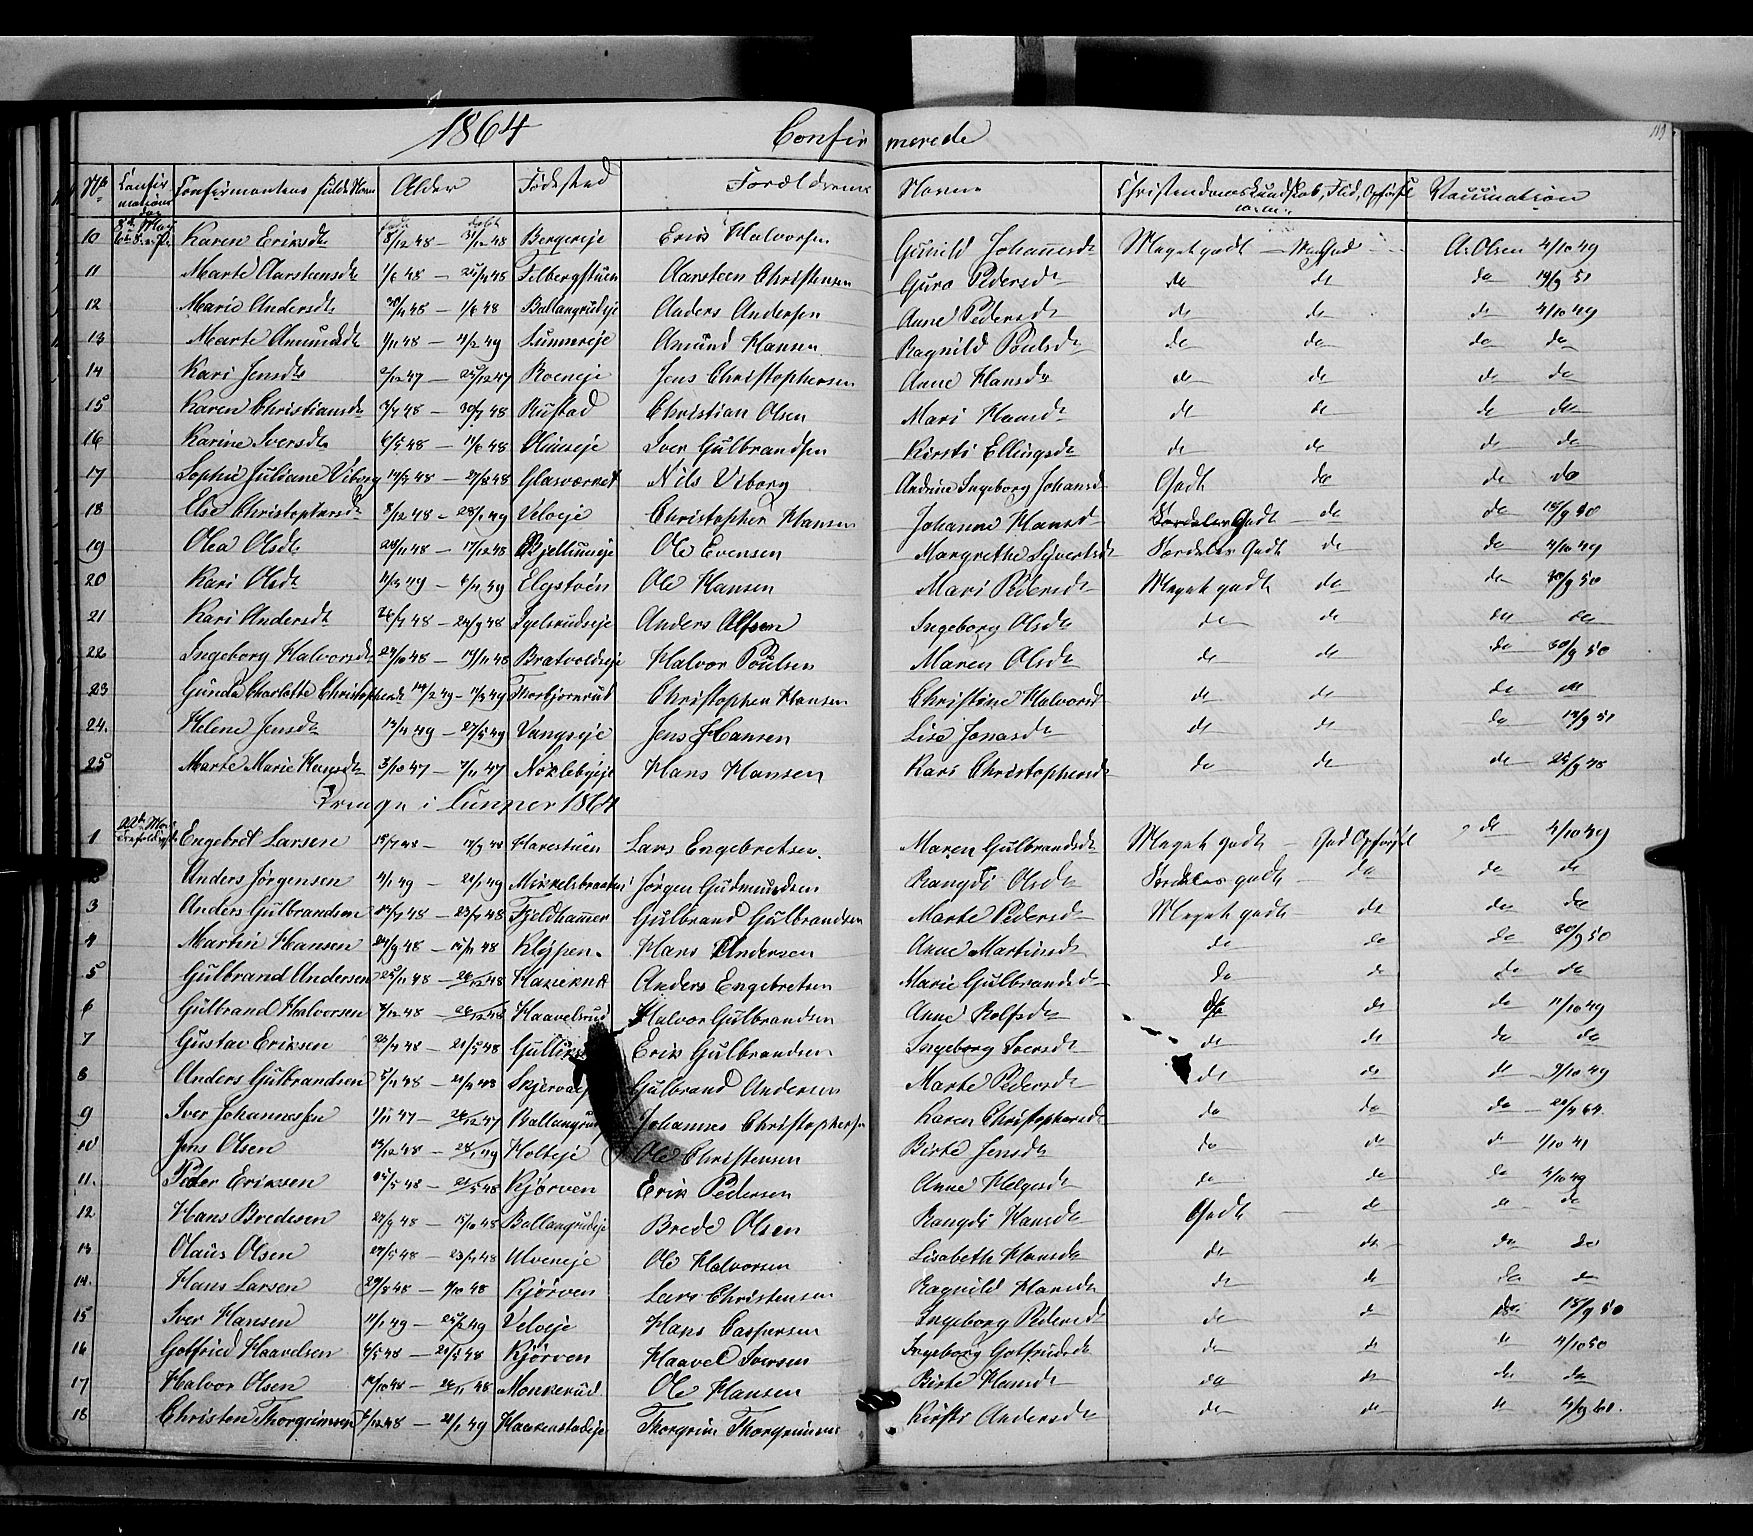 1864 Confirmerede 119
No Confirmations dag Confirmantens fulde Navn Alder Fødested Forældrenes Navne Christendoms Kundskab, Flid, Opførsel Vaccination
født døbt
10 Karen Eriksdt 8/12 48 – 31/12 48 Bergereje Erik Halvorsen Gunild Johannesdt Meget godt – A. Olsen 4/10 49
11 Marte Aarsteensdt 1/6 48 – Aarsteen Christensen Guro Pedersdt do do do 19/9 51
12 Marie Andersdt 30/4 48 – 1/6 48 Ballangrudeje Anders Andersen Anne Pedersdt do do do 4/10 49
13 Marte Amundsdt 1/11 48 – 11/2 49 Sunnereje Amund Hansen Ragnild Poulsdt do do do do
14 Kari Jensdt 2/12 47 – 25/12 47 Roeneje Jens Christophersen Anne Hansdt do do do do
15 Karen Christiansdt 3/7 48 – 30/7 48 Rustad Christian Olsen Mari Hansdt do do do do
16 Karine Iversdt 6/5 48 – 11/6 48 Olimseje Iver Gulbrandsen Kirsti Ellingsdt do do do do
17 Sophie Juliane Viborg Glasværket Nils Viborg Andrine Ingeborg Johansdt Godt do do do
18 Else Christophersdt 8/12 48 – 28/1 49 Veloeje Christopher Hansen Johanne Hansdt Godt do do
19 Olea Olsdt 28/11 48 – 17/12 48 Ole Evensen Margrethe Syvertsdt Særdeles Godt do do 4/10 49
20 Kari Olsdt Elgstøen Ole Hansen Mari Pedersdt Meget godt do do 30/9 50
21 Kari Andersdt 26/7 48 – 24/9 48 Anders Olsen Ingeborg Olsdt do do do do
22 Ingeborg Halvorsdt 24/10 48 – 19/11 48 Bratvoldseje Halvor Poulsen Maren Olsdt do do do 30/9 50
23 Gunda Charlotte Christophersdt 14/2 49 – 11/3 49 Thorbjørnrud Christopher Hansen Christine Halvorsdt do do do do
24. Helene Jensdt 13/4 49 – 27/5 49 Vangseje Jens Hansen Lise Jonasdt do do do 19/9 51
25 Marte Marie Hansdt 3/10 47 – 7/11 47 Nøklebyeje Hans Hansen Kari Christophersdt do do do
Drenge i Lunner 1864
1 Engebret Larsen Harestuen Lars Engebretsen. Maren Gulbrandsdt Meget godt – God Opførsel do 4/10 49
2 Anders Jørgensen 4/1 49 – 21/1 49 Jørgen Gudmundsen Rangdi Olsdt Særdeles godt – do do do
3 Anders Gulbrandsen – 23/7 48 Fjeldhammer Gulbrand Gulbrandsen Marte Pedersdt Meget godt do do do
4 Martin Hansen 24/9 48 – Klypen. Hans Andersen Anne Martinsdt do do do 30/9 50
5 Gulbrand Andersen 25/11 48 – 26/12 48 Anders Engebretsen Marie Gulbrandsdt do do do do
6 Gulbrand Halvorsen – 26/12 48 Haavelsrud Halvor Gulbrandsen Anne Rolfsdt do do do 11/10 49
7 Gustav Eriksen – 21/5 48 Erik Gulbrandsen Ingeborg Iversdt do do do do
8 Anders Gulbrandsen Gulbrand Andersen Marte Pedersdt do do do 9/10 49
9 Iver Johannessen 1/11 47 – 26/12 47 Johannes Christophersen Karen Christophersdt do do do
10 Jens Olsen – 28/1 49 Holteje Ole Christensen Birte Jensdt do do do
11. Peder Eriksen – 21/5 48 Kjørven Erik Pedersen Anne Helgesdt do do do 4/10 49
12 Hans Bredesen 24/9 48 – 15/10 48 Ballangrudeje Brede Olsen Rangdi Hansdt Godt do do do
13 Olaus Olsen Ulveneje Ole Halvorsen Lisabeth Hansdt do do do do
14. Hans Larsen 29/8 48 – Kjørven Lars Christensen Ragnild Hansdt do do do do
15 Iver Hansen 11/1 49 – 25/2 49 Veloeje Hans Caspersen Ingeborg Pedersdt do do do 18/9 50
16 Gotfried Haavelsen 4/5 48 – 21/5 48 Kjørven Haavel Iversen Ingeborg Gotfriedsdt do do do 4/10 50
17 Halvor Olsen 14/10 48 – 26/11 48 Monkerud. Ole Hansen Birte Hansdt do do do do
18 Christen Thorgrimsen – 21/1 49 Haakenstadeje Thorgrim Thorgrimsen Kirsti Andersdt do do do